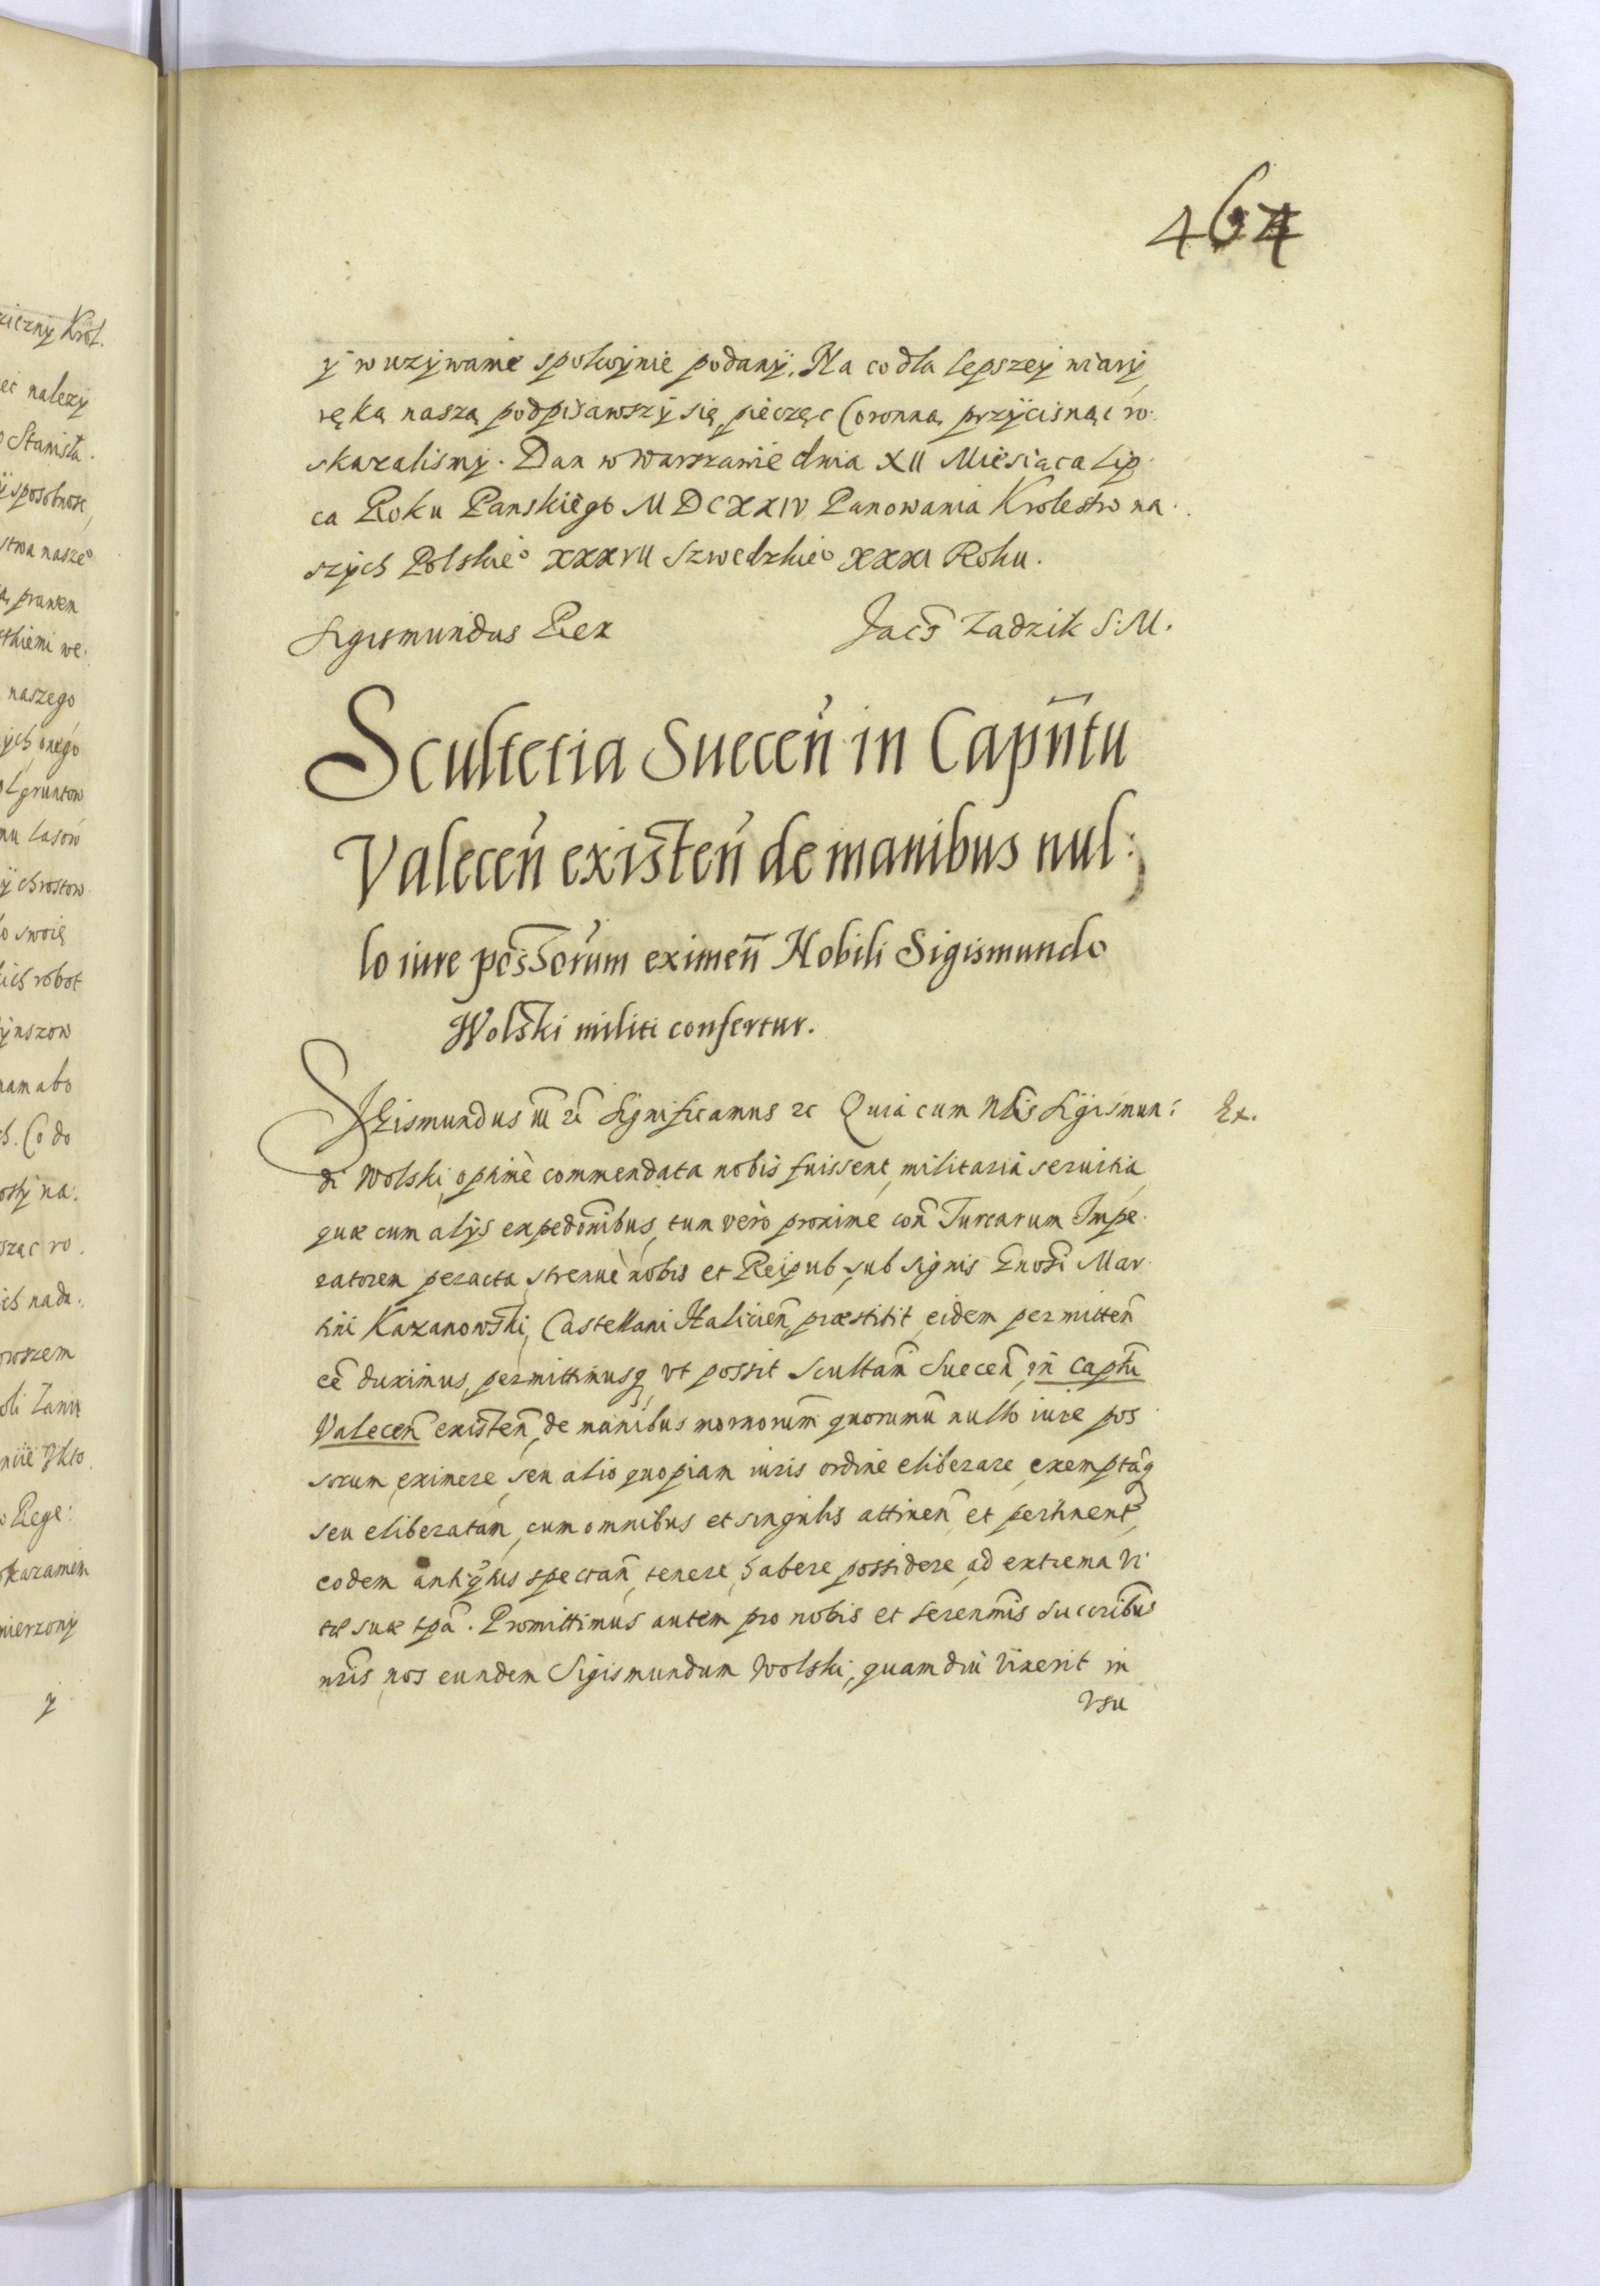 464
y w uzywanie spokoynie podany. Na co dla lepszey wiary
ręką naszą podpisawszy się, pieczęc Coronną przycisnąc ro-
skazalismy. Dan w Warszawie dnia XII Miesiąca Lip-
ca Roku Panskiego MDCXXIV Panowania Krolestw na-
szych Polskieº XXXVII Szwedzkieº XXXI Roku.
Sigismundus Rex Jacō Zadzik S. M.
Scultetia Sueceñ in Capñtu
Valeceñ existeñ de manibus nul:
lo iure poss̄orum eximeñ Nobili Sigismundo
Wolski militi confertur.
Sigismundus III ⁊c̄ Significamus ⁊c Quia cum Nblis Sigismun: Ex.
di Wolski, optimè commendata nobis fuissent, militaria seruitia,
quæ cum alijs expedōnibus, tum verò proxime coñ Turcarum Impe-
ratorem peracta, strenuè nobis et Reipub. sub signis Gnosi Mar-
tini Kazanowski, Castellani Halicieñ, præstitit, eidem permitteñ
cē duximus, permittimusq, vt possit Scultām Sueceñ, in Captū
Valeceñ existeñ, de manibus nornorum̄ quorumū nullo iure pos
sorum, eximere, seu alio quopiam iuris ordine eliberare, exemptāq
seu eliberatam, cum omnibus et singulis attineñ et pertinent,
eodem antiq̄tus spectañ, tenere, habere possidere, ad extrema vi-
tæ suæ tpā. Promittimus autem pro nobis et Serenm̄is Succribus
nris, nos eundem Sigismundum Wolski, quam diu vixerit in
vsu
należy
Stanisł.
sposobnosc,
naszeº
prawem
we:
naszego
onego
gruntow
lasow
chrostow
swoię
robot
nam abo
Co do
na:
ro.
nadu:
Rege:
y